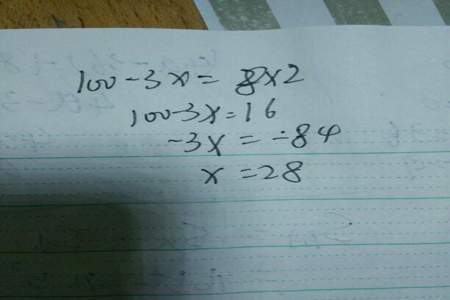 100-3x=8x2
100-3x=16
-3x=-84
x=28